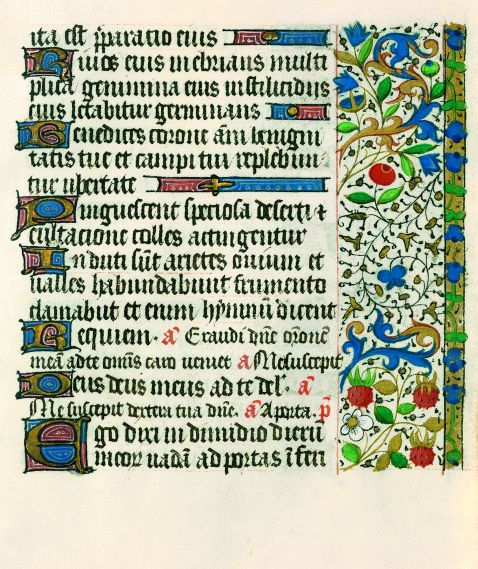 ita est p̄paratio eius
Riuos eius inebrians multi
plica genimina eius in stilicidijs
eius letabitur germinans
Benedices corone ām benigni
tatis tue et campi tui replebun
tur ubertate
Pinguescent speciosa deserti ⁊
exultacione colles actingentur
Induti sūt arietes ouium et
ualles habundabunt frumento
clamabut et enim hymnū dicent
Requiem. a Exaudi dn̄e or̄onē
meā ad te om̄is caro veniet a Me suscepit
Deus deus meus ad te del'. a
Me suscepit dextera tua dn̄e. a A porta. p̄
Ego dixi in dimidio dierū
meor̄ uadā ad portas īferi